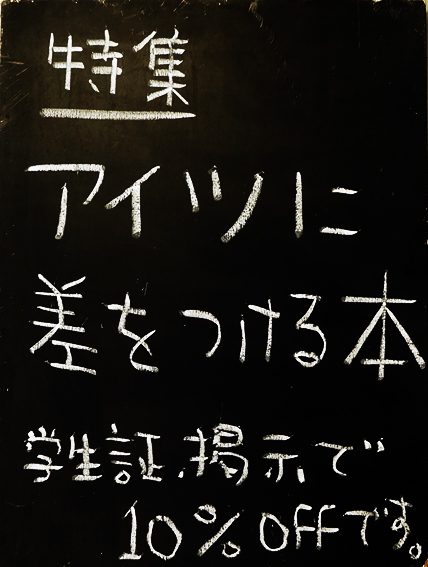 特集
アイツに
差をつける本
学生証掲示で
10% OFFです。